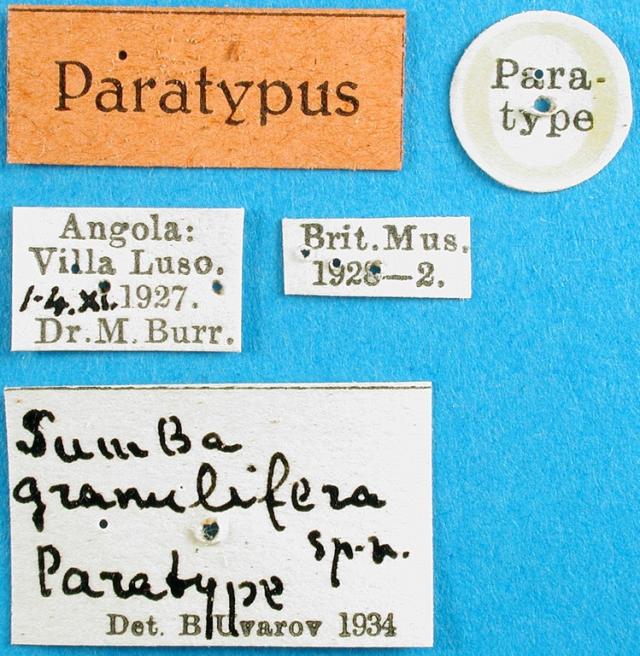 Paratypus
Para-
type
Angola:
Villa Luso.
1-4.XI.1927.
Dr. M. Burr.
Brit. Mus.
1928—2.
Sumba
granulifera
sp.n.
Paratype
Det. B Uvarov 1934